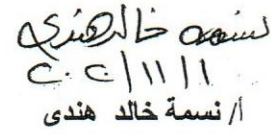 نسمه خالد هندي
٢٠٢١/١١/١
/ا نسمة خالد هندى